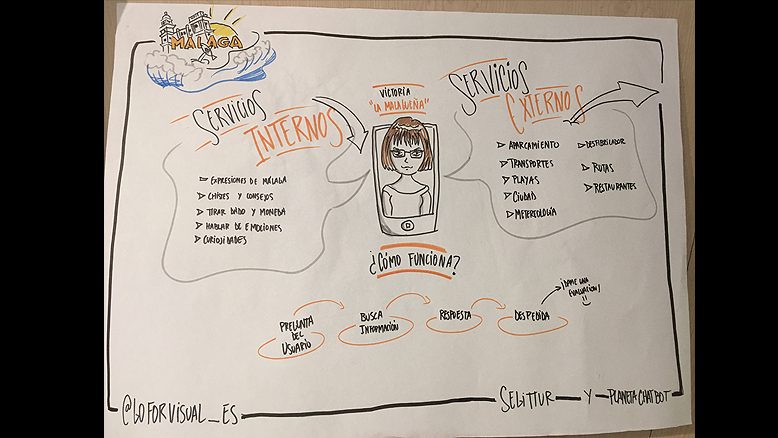 MÁLAGA
SERVICIOS
INTERNOS
EXPRESIONES DE MÁLAGA
CHISTES Y CONSEJOS
TIRAR DADO Y MONEDA
HABLAR DE EMOCIONES
CURIOSIDADES
VICTORIA
"LA MALAGUEÑA"
SERVICIOS
EXTERNOS
APARCAMIENTO
TRANSPORTES
PLAYAS
CIUDAD
METEREOLOGÍA
DESFIBRILADOR
RUTAS
RESTAURANTES
¿CÓMO FUNCIONA?
PREGUNTA
DEL
USUARIO
BUSCA
INFORMACIÓN
RESPUESTA
DESPEDIDA
¡DAME UNA
EVALUACIÓN!
@GOFORVISUAL_ES
SEGITTUR Y PLANETA CHATBOT